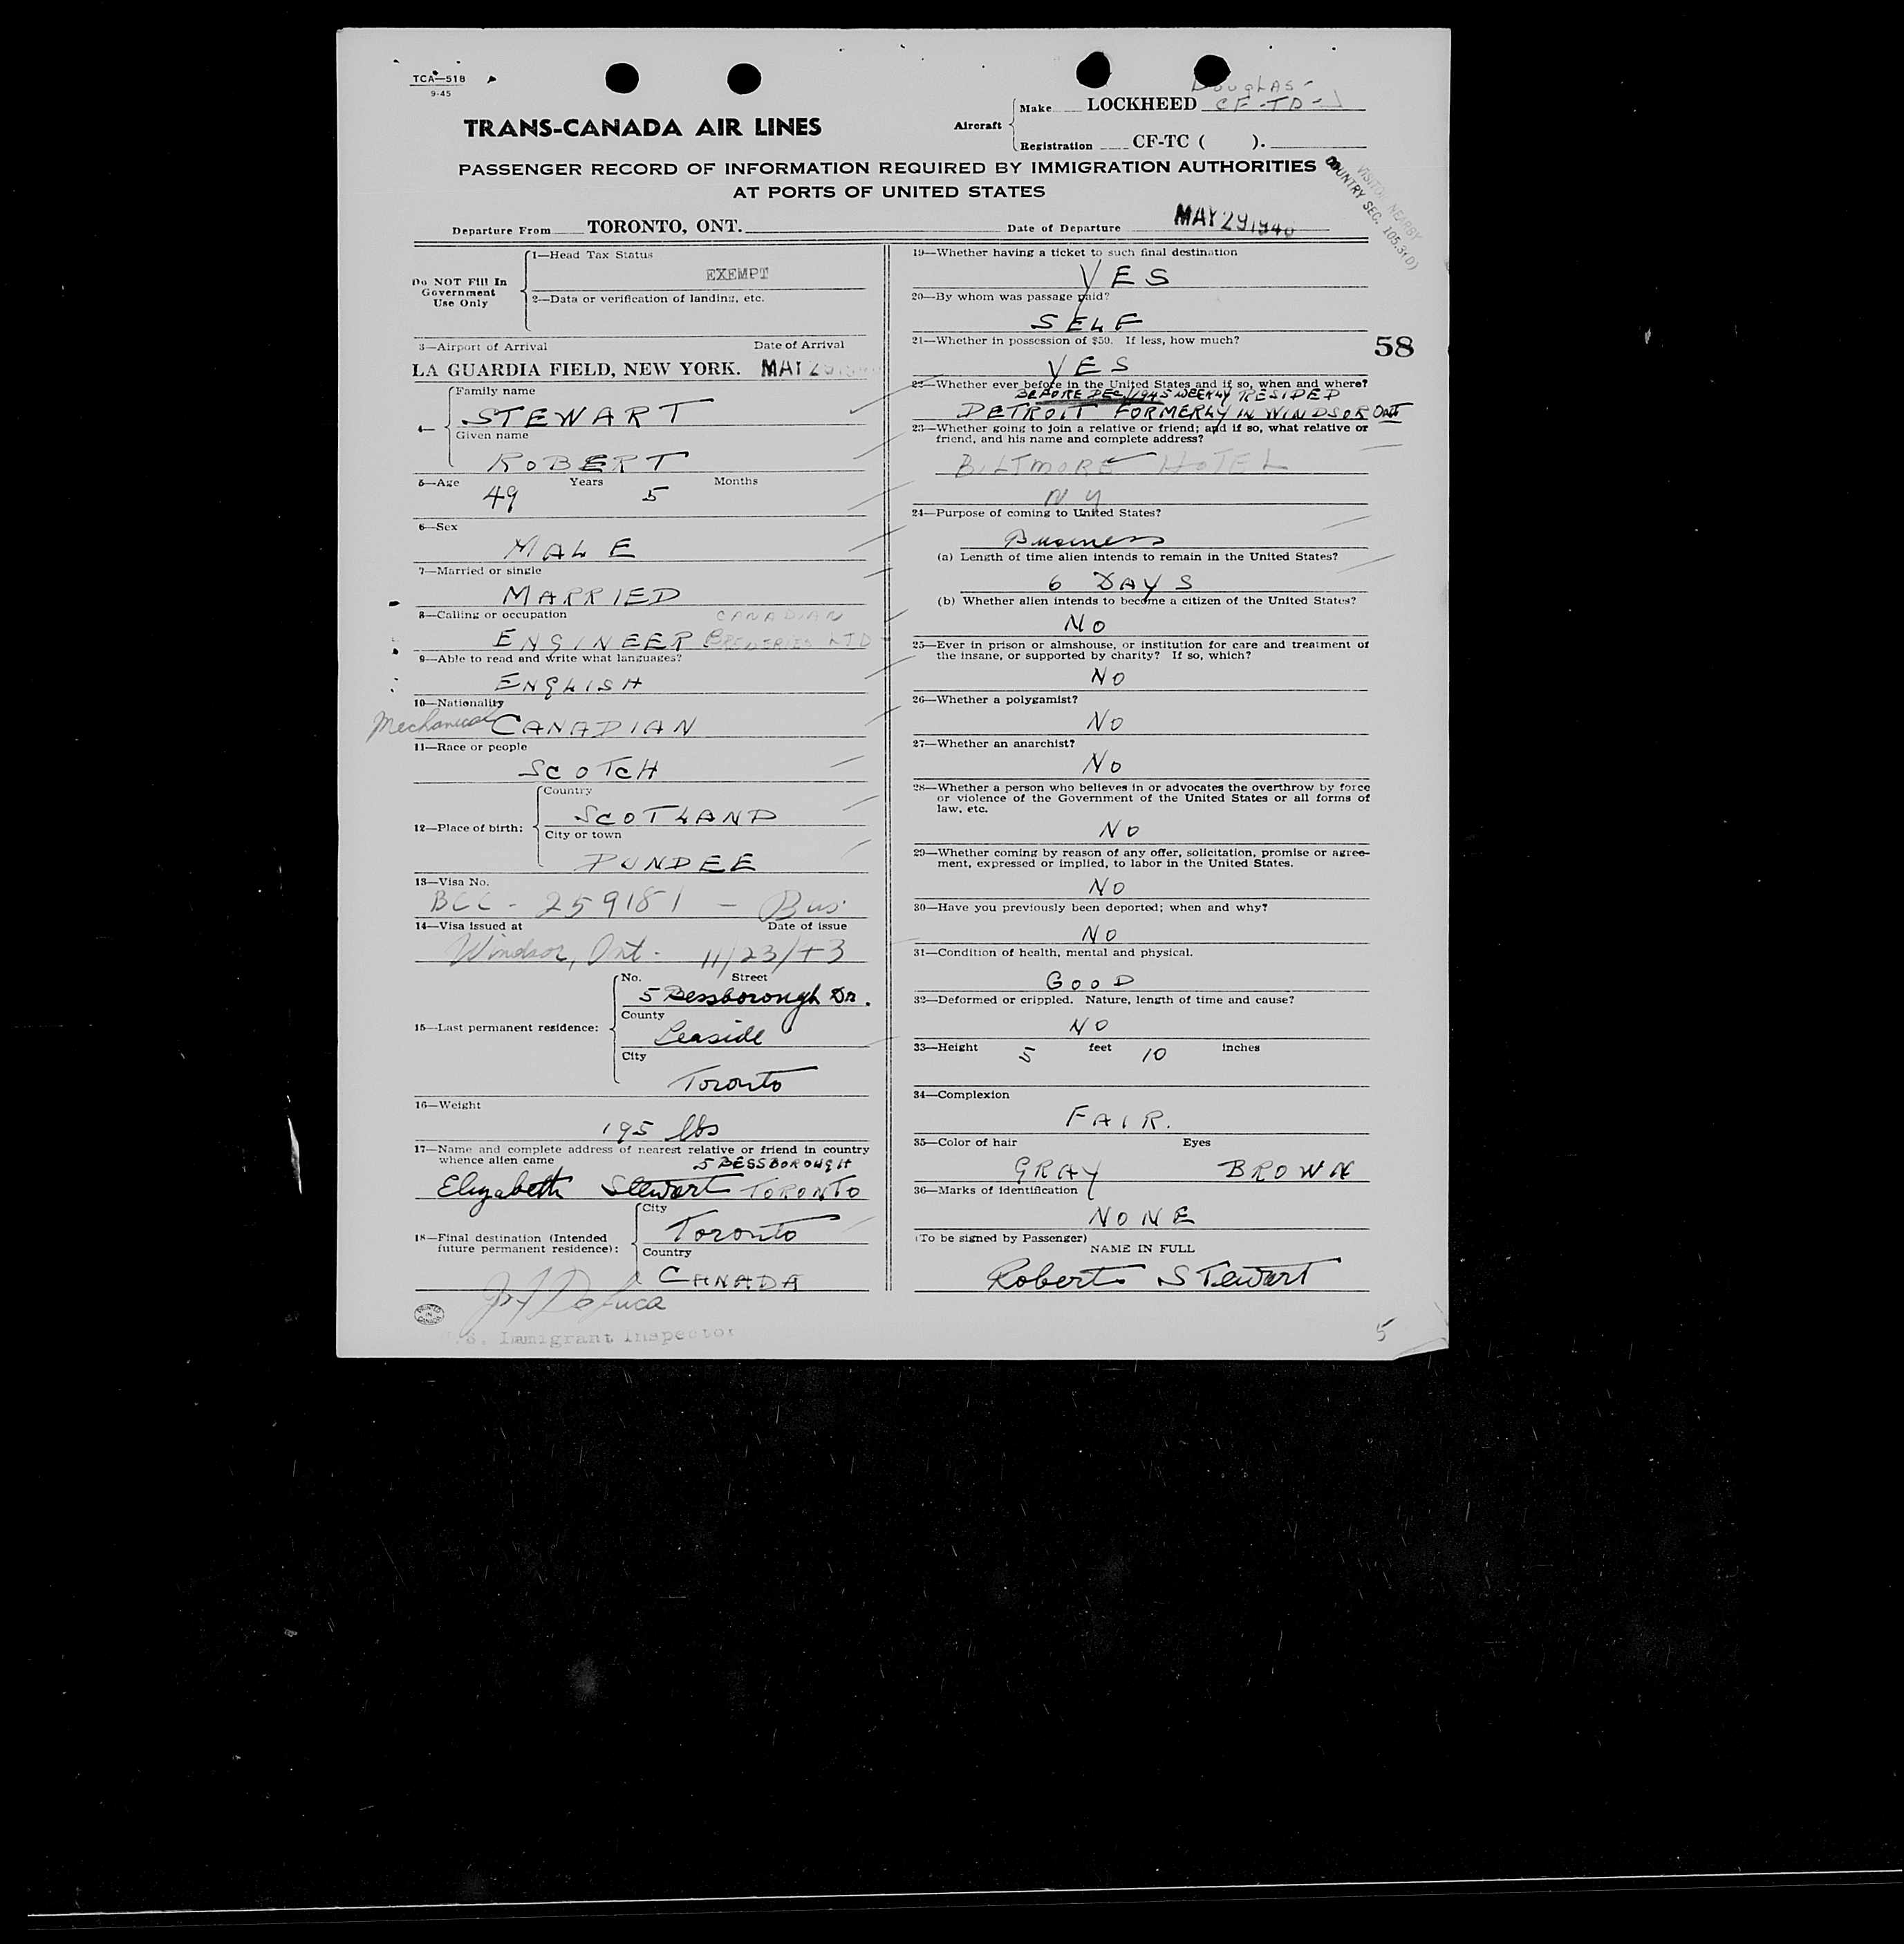 TCA—518
9-45
TRANS-CANADA AIR LINES
Aircraft
Make LOCKHEED DOUGLAS- CF-TD-J
Registration CF-TC ( ).
PASSENGER RECORD OF INFORMATION REQUIRED BY IMMIGRATION AUTHORITIES
AT PORTS OF UNITED STATES
VISITOR NEARBY
COUNTRY SEC. 105.3(D)
Departure From TORONTO, ONT.
Date of Departure MAY 29 1946
Do NOT Fill In
Government
Use Only
1—Head Tax Status
EXEMPT
2—Data or verification of landing, etc.
3—Airport of Arrival Date of Arrival
LA GUARDIA FIELD, NEW YORK. MAY 29 194
4—
Family name
STEWART
Given name
ROBERT
5—Age 49 Years 5 Months
6—Sex
MALE
7—Married or single
MARRIED
8—Calling or occupation CANADIAN
ENGINEER BREWERIES LTD
9—Able to read and write what languages?
ENGLISH
10—Nationality
Mechanical CANADIAN
11—Race or people
SCOTCH
12—Place of birth:
Country
SCOTLAND
City or town
DUNDEE
13—Visa No.
BCC - 259181 — Bus.
14—Visa issued at Date of issue
Windsor, Ont. 11/23/43
15—Last permanent residence:
No. Street
5 Bessborough Dr.
County
Leaside
City
Toronto
16—Weight
195 lbs
17—Name and complete address of nearest relative or friend in country
whence alien came 5 BESSBOROUGH
Elizabeth Stewart TORONTO
18—Final destination (Intended
future permanent residence):
City
Toronto
Country
CANADA
U.S. Immigrant Inspector
19—Whether having a ticket to such final destination
YES
20—By whom was passage paid?
SELF
21—Whether in possession of $50. If less, how much?
58
YES
22—Whether ever before in the United States and if so, when and where?
BEFORE DEC/1945 WEEKLY RESIDED
DETROIT FORMERLY IN WINDSOR ONT
23—Whether going to join a relative or friend; and if so, what relative or
friend, and his name and complete address?
BILTMORE HOTEL
N Y
24—Purpose of coming to United States?
Business
(a) Length of time alien intends to remain in the United States?
6 DAYS
(b) Whether alien intends to become a citizen of the United States?
NO
25—Ever in prison or almshouse, or institution for care and treatment of
the insane, or supported by charity? If so, which?
NO
26—Whether a polygamist?
NO
27—Whether an anarchist?
NO
28—Whether a person who believes in or advocates the overthrow by force
or violence of the Government of the United States or all forms of
law, etc.
NO
29—Whether coming by reason of any offer, solicitation, promise or agree-
ment, expressed or implied, to labor in the United States.
NO
30—Have you previously been deported; when and why?
NO
31—Condition of health, mental and physical.
GOOD
32—Deformed or crippled. Nature, length of time and cause?
NO
33—Height 5 feet 10 inches
34—Complexion
FAIR.
35—Color of hair Eyes
GRAY BROWN
36—Marks of identification
NONE
(To be signed by Passenger)
NAME IN FULL
Robert Stewart
5